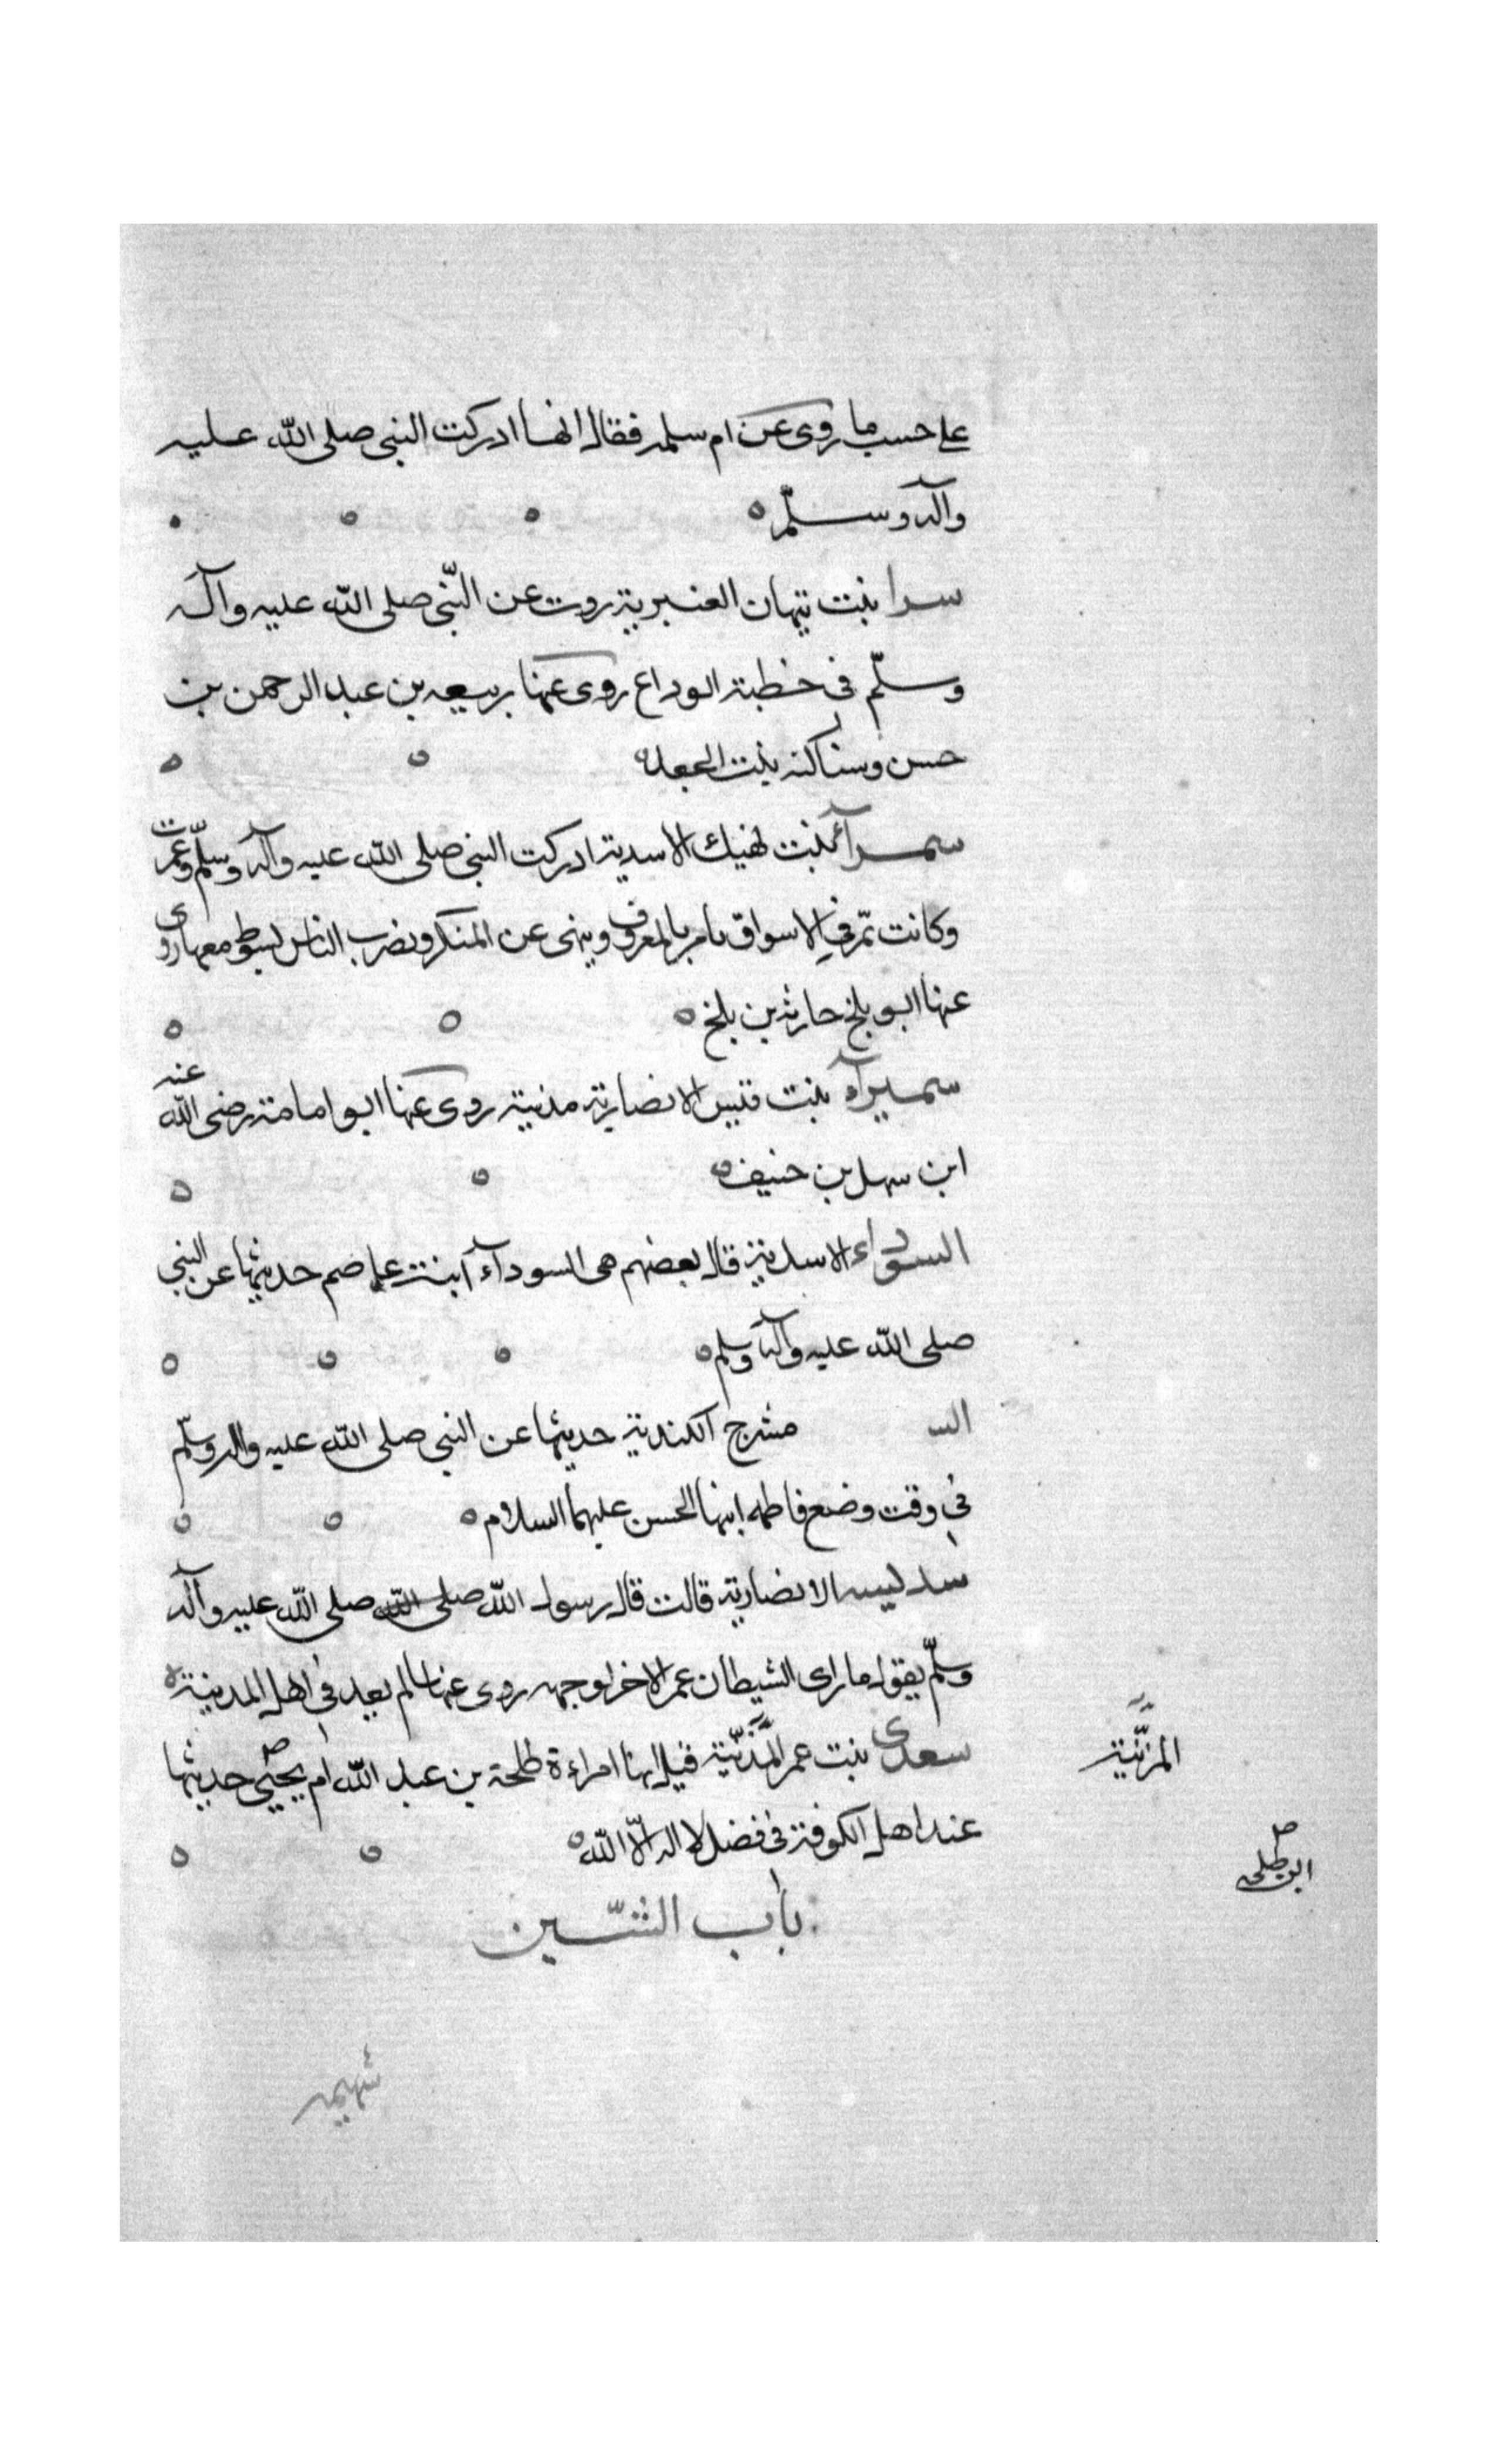 على حسب ما روى عن ام سلمه فقال انها ادركت النبى صلى الله عليه
وآله وسلّم
سرا بنت تيهان العنبرية روت عن النّبى صلى الله عليه وآله
وسلّم فى خطبة الوداع روى عنها ربيعه بن عبد الرحمن بن
حسن وسناكنه بنت الجعد
سمرآء بنت نهيك الاسدية ادركت النبى صلى الله عليه وآله وسلّم وعمرت
وكانت تمّر في الاسواق يامر بالمعروف وينهى عن المنكر ويضرب الناس بسوط معها روى
عنها ابو بلخ حارثه بن بلخ
سميرآء بنت قيس الانصارية مدنية روى عنها ابو امامة رضى الله عنه
ابن سهل بن حنيف
السوداء الاسدية قال بعضهم هى السودآء ابنت عاصم حديثها عن النبى
صلى الله عليه وآله وسلم
الس مشرج الكندية حديثها عن النبى صلى الله عليه واله وسلّم
في وقت وضع فاطمه ابنها الحسن عليهما السلام
سديسه الانصارية قالت قال رسول الله صلى الله صلى الله عليه وآله
وسلّم يقول ما راى الشيطان عمر الا خر لوجهه روى عنها سالم يعد فى اهل المدينة
سعدى بنت عمر المذنّية قيل انها امراءة طلحة بن عبد الله ام يحيى حديثها
المزنّية
عند اهل الكوفة فى فضل لا اله الّا الله
ابن طلحه
باب الشّين
شهيمه